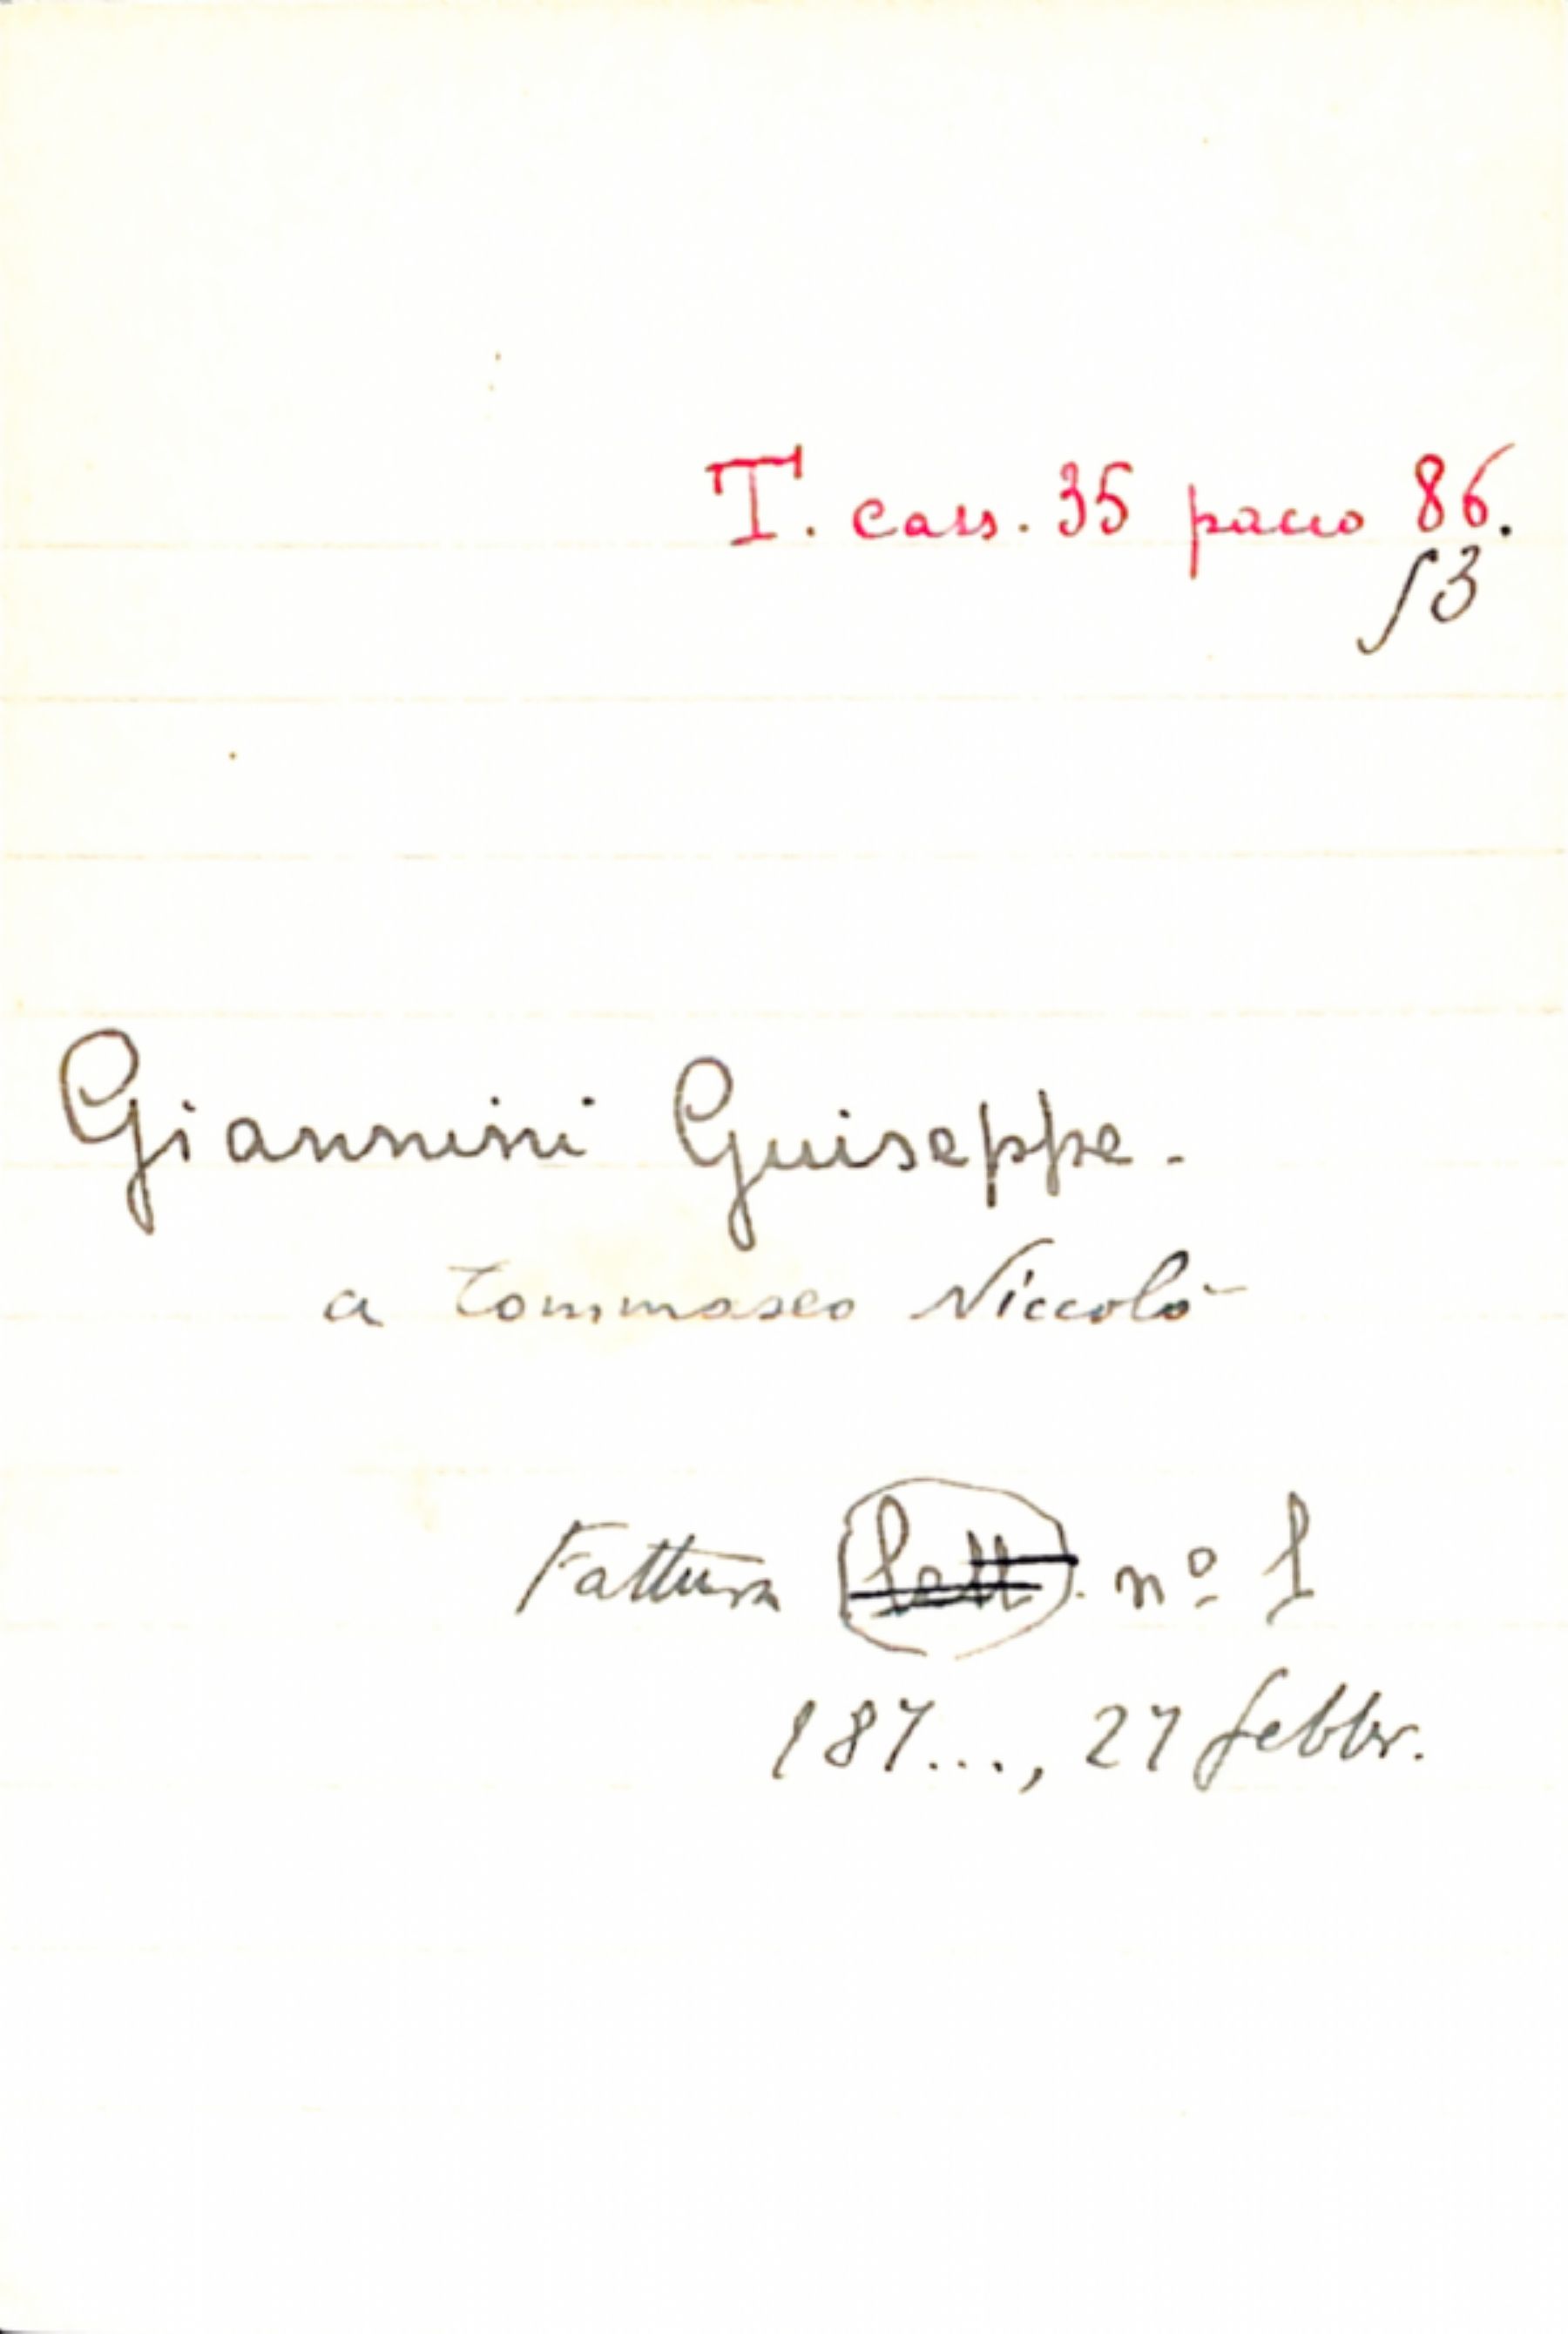 T. cass. 35 pacco 86.
∫3
Giannini Guiseppe.
a Tommaseo Niccolò
Fattura lett. nº 1
187..., 27 febbr.